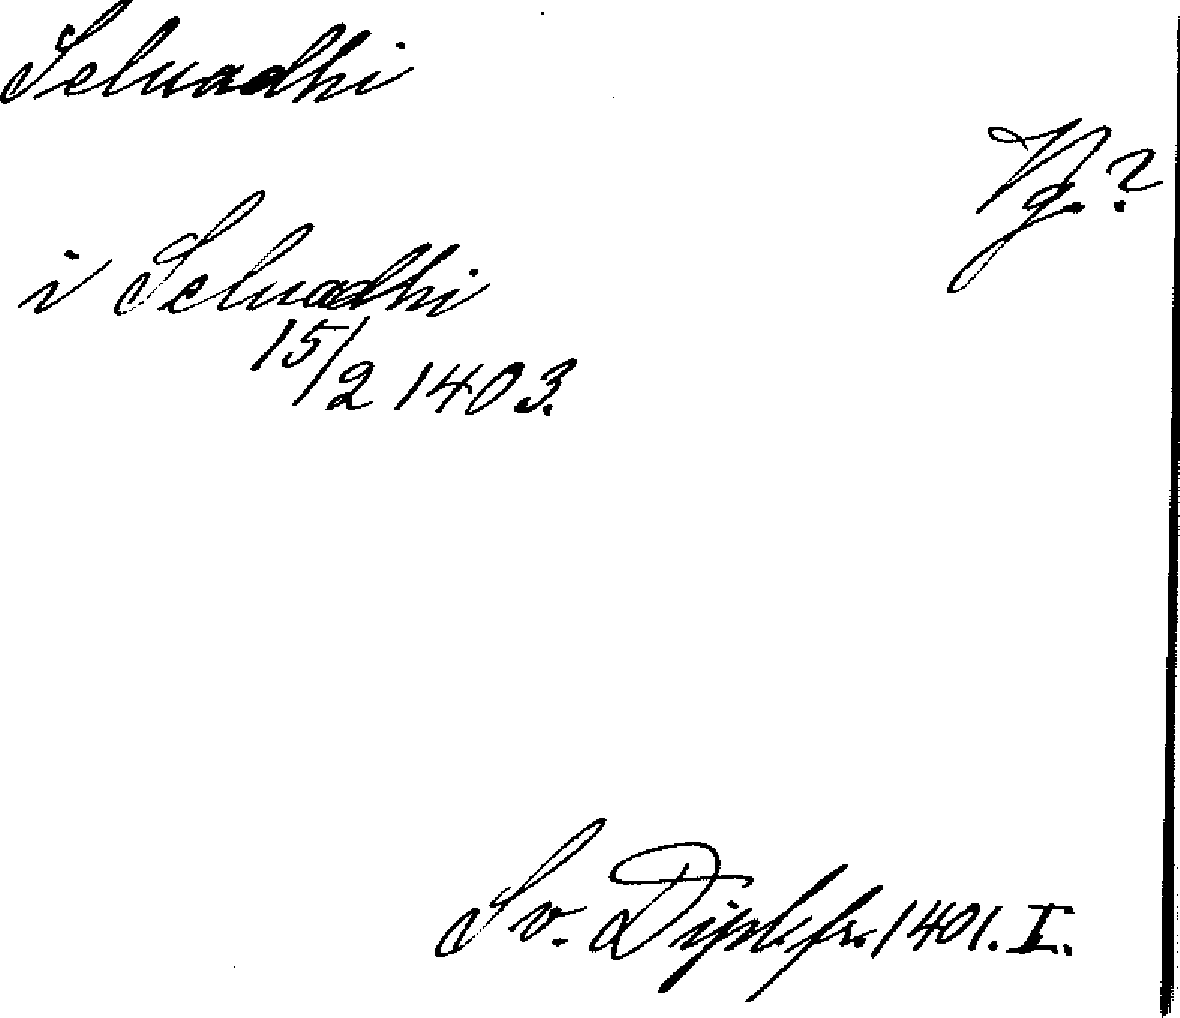 Seluadhi
Vg.?
i Seluadhi
15/2 1403.
Sv. Dipl. fr. 1401. I.